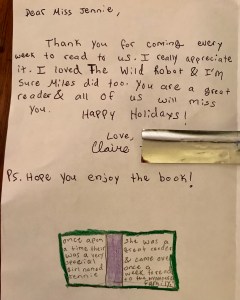 Dear Miss Jennie,
Thank you for coming every
week to read to us. I really appreciate
it. I loved The Wild Robot & I'm
Sure Miles did too. You are a great
reader & all of us will miss
you.
Happy Holidays!
Love,
Claire
PS. Hope you enjoy the book!
once apon
a time their
was a very
special
girl named
Jennie
She was a
great reader
& came over
once a
week to read
to the